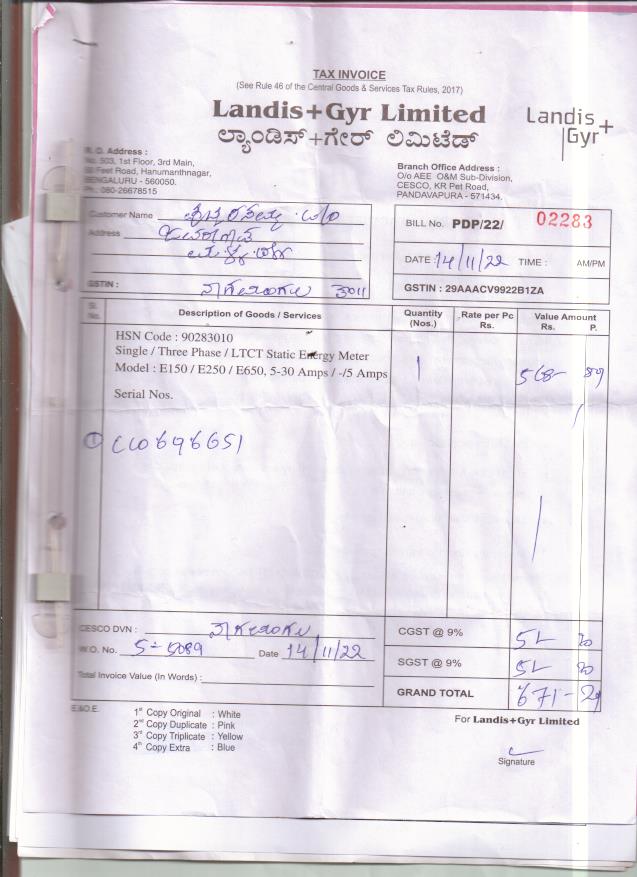 TAX INVOICE
(See Rule 46 of the Central Goods & Services Tax Rules, 2017)
Landis+Gyr Limited
ಲ್ಯಾಂಡಿಸ್+ಗೇರ್ ಲಿಮಿಟೆಡ್
Landis+
Gyr
R. O. Address :
No. 503, 1st Floor, 3rd Main,
Feet Road, Hanumanthnagar,
BENGALURU - 560050.
Ph : 080-26678515
Branch Office Address :
O/o AEE O&M Sub-Division,
CESCO, KR Pet Road,
PANDAVAPURA - 571434.
Customer Name
Address
GSTIN :
BILL No. PDP/22/ 02283
DATE 14/11/22 TIME : AM/PM
GSTIN : 29AAACV9922B1ZA
Sl. No. Description of Goods / Services Quantity (Nos.) Rate per Pc Rs. Value Amount Rs. P.
HSN Code : 90283010
Single / Three Phase / LTCT Static Energy Meter
Model : E150 / E250 / E650, 5-30 Amps / -/5 Amps 1
Serial Nos.
CESCO DVN :
W.O. No. Date 14/11/22
Total Invoice Value (In Words) :
CGST @ 9%
SGST @ 9%
GRAND TOTAL 671-
E.&O.E.
1st Copy Original : White
2nd Copy Duplicate : Pink
3rd Copy Triplicate : Yellow
4th Copy Extra : Blue
For Landis+Gyr Limited
Signature